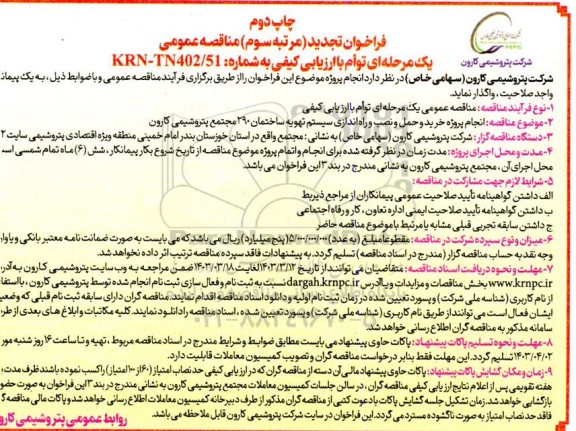 چاپ دوم
فراخوان تجدید (مرتبه سوم) مناقصه عمومی
یک مرحله‌ای توأم با ارزیابی کیفی به شماره: KRN-TN402/51
KRNPC
شرکت پتروشیمی کارون
شرکت پتروشیمی کارون (سهامی خاص) در نظر دارد انجام پروژه موضوع این فراخوان را از طریق برگزاری فرآیند مناقصه عمومی و با ضوابط ذیل، به یک پیمانکار
واجد صلاحیت، واگذار نماید.
۱-نوع فرآیند مناقصه: مناقصه عمومی یک مرحله‌ای توأم با ارزیابی کیفی
۲-موضوع مناقصه: انجام پروژه خرید و حمل و نصب و راه اندازی سیستم تهویه ساختمان ۲۹۰ مجتمع پتروشیمی کارون
۳-دستگاه مناقصه گزار: شرکت پتروشیمی کارون (سهامی خاص) به نشانی: مجتمع واقع در استان خوزستان بندر امام خمینی منطقه ویژه اقتصادی پتروشیمی سایت ۲
۴-مدت و محل اجرای پروژه: مدت زمان در نظر گرفته شده برای انجام و اتمام پروژه موضوع مناقصه از تاریخ شروع بکار پیمانکار، شش (۶) ماه تمام شمسی است
محل اجرای آن، مجتمع پتروشیمی کارون به نشانی مندرج در بند ۳ این فراخوان می باشد.
۵-شرایط لازم جهت مشارکت در مناقصه:
الف داشتن گواهینامه تأیید صلاحیت عمومی پیمانکاران از مراجع ذیربط
ب داشتن گواهینامه تأیید صلاحیت ایمنی اداره تعاون، کار و رفاه اجتماعی
ج داشتن سابقه تجربی قبلی مشابه یا مرتبط با موضوع مناقصه حاضر
۶-میزان و نوع سپرده شرکت در مناقصه: مقطوعاً مبلغ (به عدد) ۵/۰۰۰/۰۰۰/۰۰۰ (پنج میلیارد) ریال می باشد که می بایست به صورت ضمانت نامه معتبر بانکی و یا واریز
وجه نقد به حساب مناقصه گزار (مندرج در اسناد مناقصه) تسلیم گردد. به پیشنهادات فاقد سپرده مناقصه ترتیب اثر داده نخواهد شد.
۷-مهلت و نحوه دریافت اسناد مناقصه: متقاضیان می توانند از تاریخ ۱۴۰۲/۱۲/۱۲ لغایت ۱۴۰۳/۰۳/۱۸ ضمن مراجعه به وب سایت پتروشیمی کارون به آدرس
www.krnpc.ir بخش مناقصات و مزایدات و یا آدرس dargah.krnpc.ir نسبت به ثبت نام و فعال سازی ثبت نام انجام شده توسط پتروشیمی کارون، با استفاده
از نام کاربری (شناسه ملی شرکت) و پسورد تعیین شده در زمان ثبت نام اولیه و دانلود اسناد مناقصه اقدام نمایند. مناقصه گران دارای سابقه ثبت نام قبلی که وضعیت
ایشان فعال است می توانند از طریق نام کاربری (شناسه ملی شرکت) و پسورد تعیین شده، اسناد مناقصه را دانلود نمایند. کلیه مکاتبات و ابلاغ های بعدی از طریق
سامانه مذکور به مناقصه گران اطلاع رسانی خواهد شد.
۸-مهلت و نحوه تسلیم پاکات پیشنهاد: پاکات حاوی پیشنهاد می بایست مطابق ضوابط و شرایط مندرج در اسناد مناقصه مربوط، تهیه و تا ساعت ۱۶ روز شنبه مورخ
۱۴۰۳/۰۴/۰۲ تسلیم گردد. این مهلت فقط بنابر درخواست مناقصه گران و تصویب کمیسیون معاملات قابلیت دارد.
۹-زمان و مکان گشایش پاکات پیشنهاد: پاکات حاوی پیشنهاد مالی آن دسته از مناقصه گران که در ارزیابی کیفی حد نصاب امتیاز (۶۰ از ۱۰۰ امتیاز) را کسب نموده باشند ظرف مدت
هفته تقویمی پس از اعلام نتایج ارزیابی کیفی مناقصه گران، در سالن جلسات کمیسیون معاملات مجتمع پتروشیمی کارون به نشانی مندرج در بند ۳ این فراخوان به صورت حضوری
بازگشایی خواهد شد. زمان تشکیل جلسه گشایش پاکات با دعوت کتبی از مناقصه گران مذکور از طرف دبیرخانه کمیسیون معاملات اطلاع رسانی خواهد شد و پاکات مالی مناقصه گران
فاقد حد نصاب امتیاز به صورت ناگشوده مسترد می گردد. این فراخوان در سایت شرکت پتروشیمی کارون قابل ملاحظه می باشد.
روابط عمومی پتروشیمی کارون